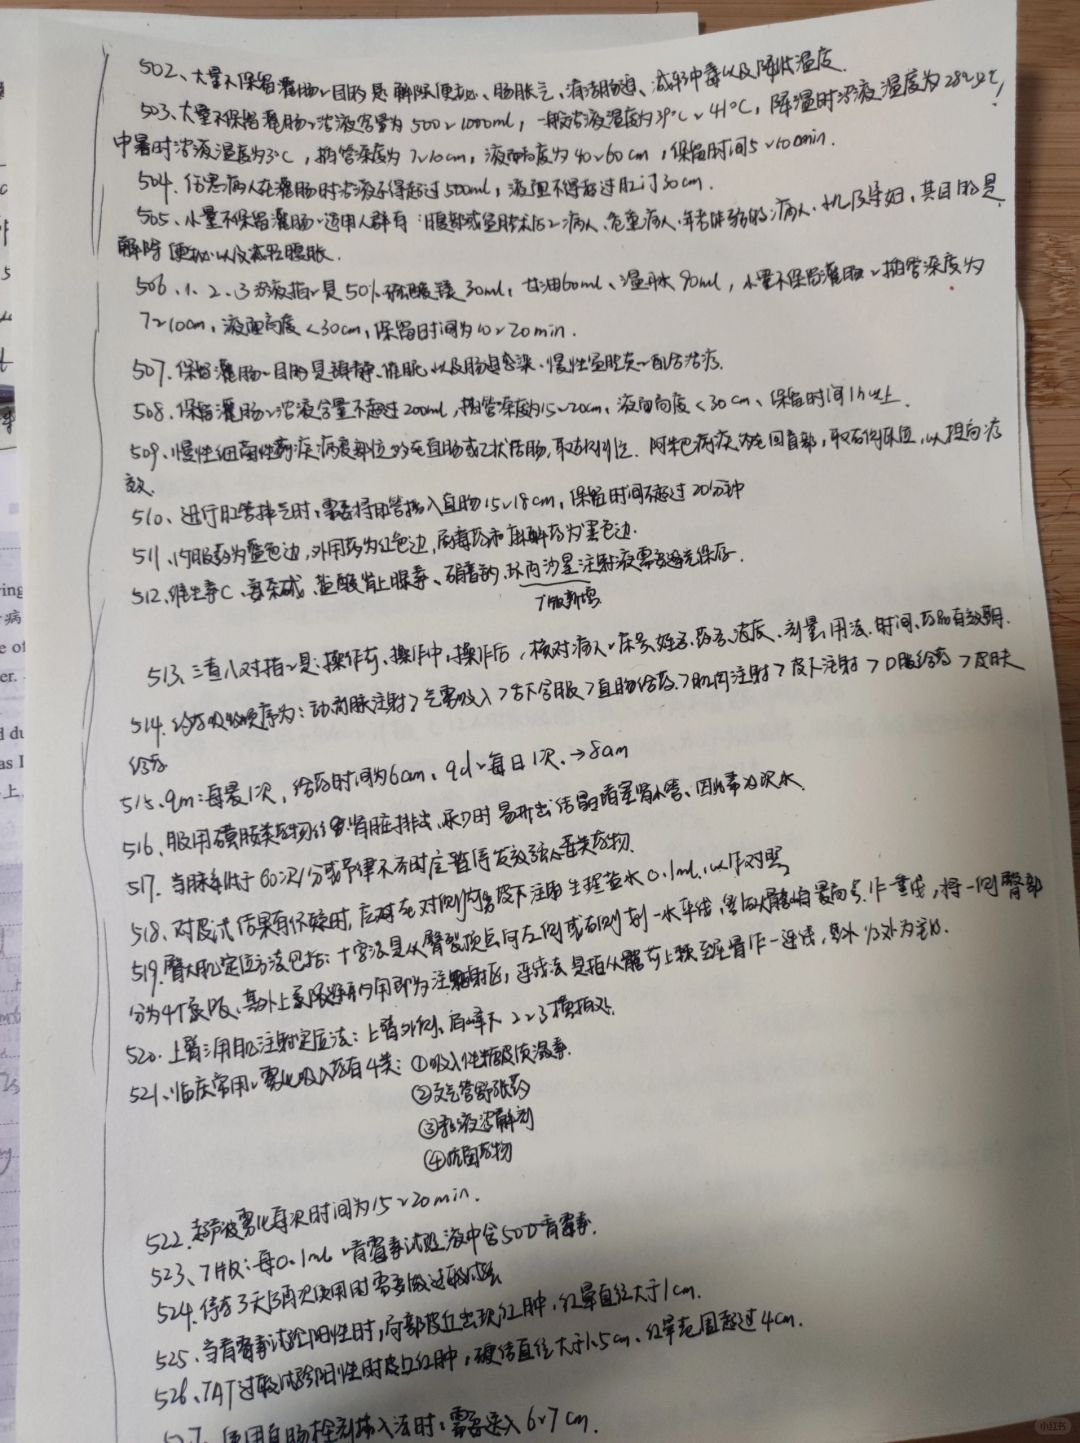 502、大量不保留灌肠~目的是解除便秘、肠胀气、清洁肠道、减轻中毒以及降低温度.
503、大量不保留灌肠~溶液容量为500~1000ml，一般溶液温度为39℃~41℃，降温时溶液温度为28~32℃，
中暑时溶液温度为3℃，插管深度为7~10cm，液面高度为40~60cm，保留时间5~10min.
504、伤寒病人在灌肠时溶液不得超过500ml，液面不得超过肛门30cm.
505、小量不保留灌肠~适用人群有：腹部或盆腔术后~病人、危重病人、年老体弱的病人、小儿及孕妇，其目的是
解除便秘以及减轻腹胀.
506、1、2、3溶液指~是50%硫酸镁30ml，甘油60ml、温水90ml，小量不保留灌肠~插管深度为
7~10cm，液面高度<30cm，保留时间为10~20min.
507、保留灌肠~目的是镇静、催眠以及肠道感染、慢性盆腔炎~配合治疗.
508、保留灌肠~溶液含量不超过200ml，插管深度为15~20cm，液面高度<30cm、保留时间1h以上.
509、慢性细菌性痢疾病变部位多在直肠或乙状结肠，取左侧位. 阿米巴痢疾多在回盲部，取右侧卧位，以提高疗
效.
510、进行肛管排气时，需要将肛管插入直肠15~18cm，保留时间不超过20分钟
511、内服药为蓝色边，外用药为红色边，剧毒药和麻醉药为黑色边.
512、维生素C、氨茶碱、盐酸肾上腺素、硝普钠、环丙沙星注射液需要避光保存.
7版新增
513、三查八对指~是：操作前、操作中、操作后，核对病人~床号、姓名、药名、浓度、剂量、用法、时间、药品有效期.
514、给药吸收顺序为：动静脉注射>气雾吸入>舌下含服>直肠给药>肌内注射>皮下注射>口服给药>皮肤
给药
515、qm：每晨1次，给药时间为6am、qd~每日1次、→8am
516、服用磺胺类药物经肾脏排出，尿少时易析出结晶堵塞肾小管、因此需多次水.
517、当脉率低于60次/分或节律不齐时应暂停发放强心苷类药物.
518、对皮试结果有怀疑时，应对在对侧前臂皮下注射生理盐水0.1ml，以作对照
519、臀大肌定位方法包括：十字法是从臀裂顶点向左侧或右侧划一水平线，然后从髂嵴最高点作一垂线，将一侧臀部
分为4个象限、其外上象限避开内角即为注射区，连线法是指从髂前上棘至尾骨作一连线，其外1/3处为主.
520、上臂三角肌注射定位法：上臂外侧、肩峰下2~3横指处.
521、临床常用~雾化吸入药有4类：①吸入性糖皮质激素.
②支气管舒张药
③黏液溶解剂
④抗菌药物
522、超声波雾化每次时间为15~20min.
523、7版：每0.1ml~青霉素试验液中含50U青霉素.
524、停药3天后再次使用时需要做过敏试验
525、当青霉素试验阳性时，局部皮丘出现红肿，红晕直径大于1cm.
526、TAT过敏试验阳性时皮丘红肿，硬结直径大于1.5cm、红晕范围超过4cm.
527、使用直肠栓剂插入法时，需要送入6~7cm.
小红书